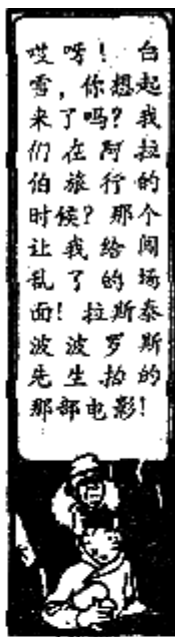 哎呀！台
雪，你想起
来了吗？我
们在阿拉
伯旅行的
时候？那个
让我给闯
乱了的场
面！拉斯泰
波波罗斯
先生拍的
那部电影！